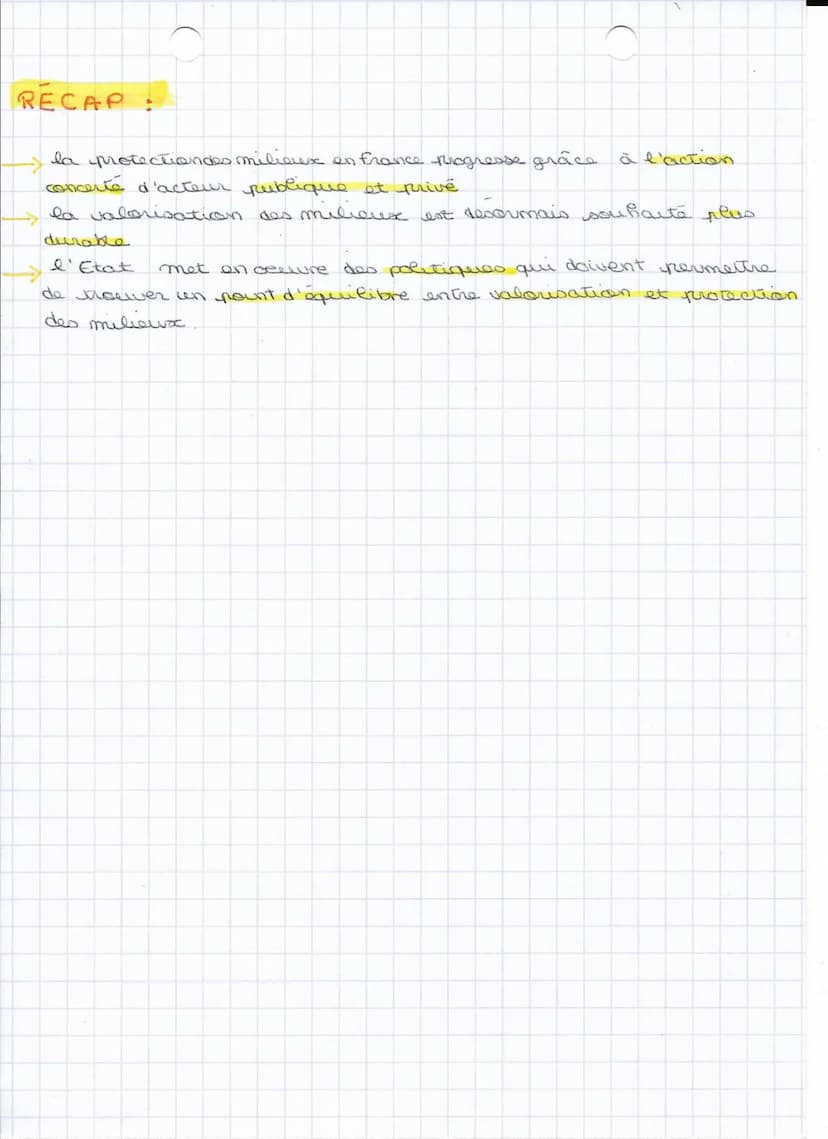 RÉCAP :
→ la protection des milieux en France progresse grâce à l'action
concerté d'acteur publique et privé
→ la valorisation des milieux est désormais souhaité plus
durable
→ l'Etat met en oeuvre des politiques qui doivent permettre
de trouver un point d'équilibre entre valorisation et protection
des milieux